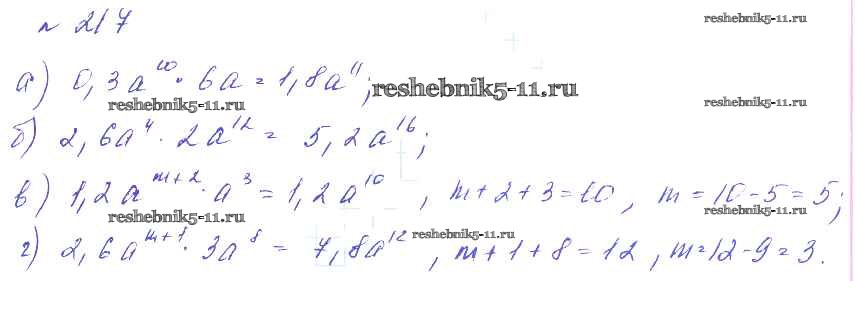 № 217
reshebnik5-11.ru
а) 0,3a¹⁰ · 6a = 1,8a¹¹; reshebnik5-11.ru
reshebnik5-11.ru reshebnik5-11.ru
б) 2,6a⁴ · 2a¹² = 5,2a¹⁶;
в) 1,2a^{m+2} · a³ = 1,2a¹⁰, m+2+3=10, m=10-5=5;
reshebnik5-11.ru reshebnik5-11.ru
г) 2,6a^{m+1} · 3a⁸ = 7,8a¹², m+1+8=12, m=12-9=3.
reshebnik5-11.ru